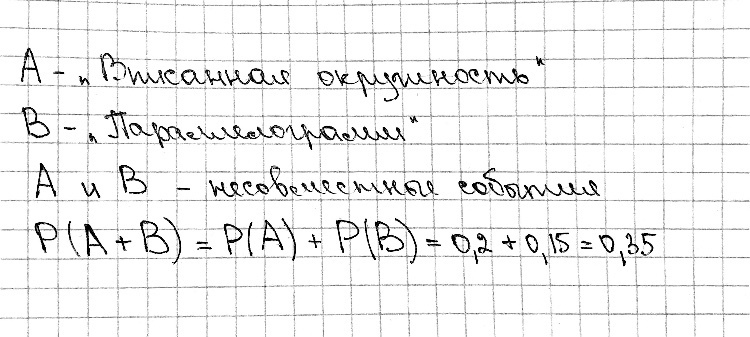 A - „Вписанная окружность"
B - „Параллелограмм"
A и B - несовместные события
P(A + B) = P(A) + P(B) = 0,2 + 0,15 = 0,35